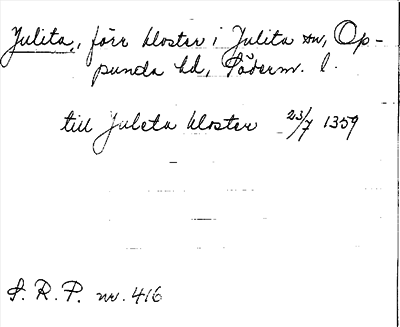 Julita, förr kloster i Julita sn, Op-
punda hd, Söderm. l.
till Juleta kloster 23/7 1359
S. R. P. nr. 416